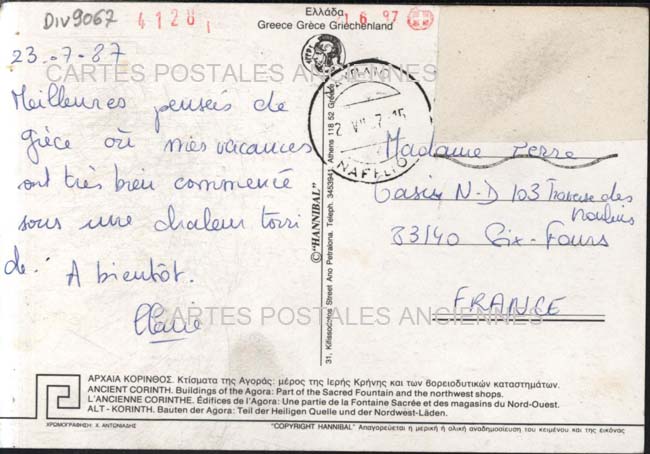 Div9067
4120
16 97
Ελλάδα
Greece Grèce Griechenland
23.-7-87
CARTES POSTALES ANCIENNES
Meilleures pensées de
grèce où mes vacances
ont très bien commencé
sous une chaleur torri
de. A bientôt.
NAFPLIO
Madame
Oasis N-D 103 Traverse des
Moulins
83140 Six-Fours
FRANCE
CARTES POSTALES ANCIENNES
©"HANNIBAL"
31, Killissodetos Street Ano Petralona, Teleph. 3453941, Athens 118 52 Greece
ΑΡΧΑΙΑ ΚΟΡΙΝΘΟΣ. Κτίσματα της Αγοράς: μέρος της Ιερής Κρήνης και των βορειοδυτικών καταστημάτων.
ANCIENT CORINTH. Buildings of the Agora: Part of the Sacred Fountain and the northwest shops.
L'ANCIENNE CORINTHE. Édifices de l'Agora: Une partie de la Fontaine Sacrée et des magasins du Nord-Ouest.
ALT - KORINTH. Bauten der Agora: Teil der Heiligen Quelle und der Nordwest-Läden.
ΧΡΩΜΟΓΡΑΦΗΣΗ: Χ. ΑΝΤΩΝΙΑΔΗΣ
"COPYRIGHT HANNIBAL" Απαγορεύεται η μερική ή ολική αναδημοσίευση του κειμένου και της εικόνας